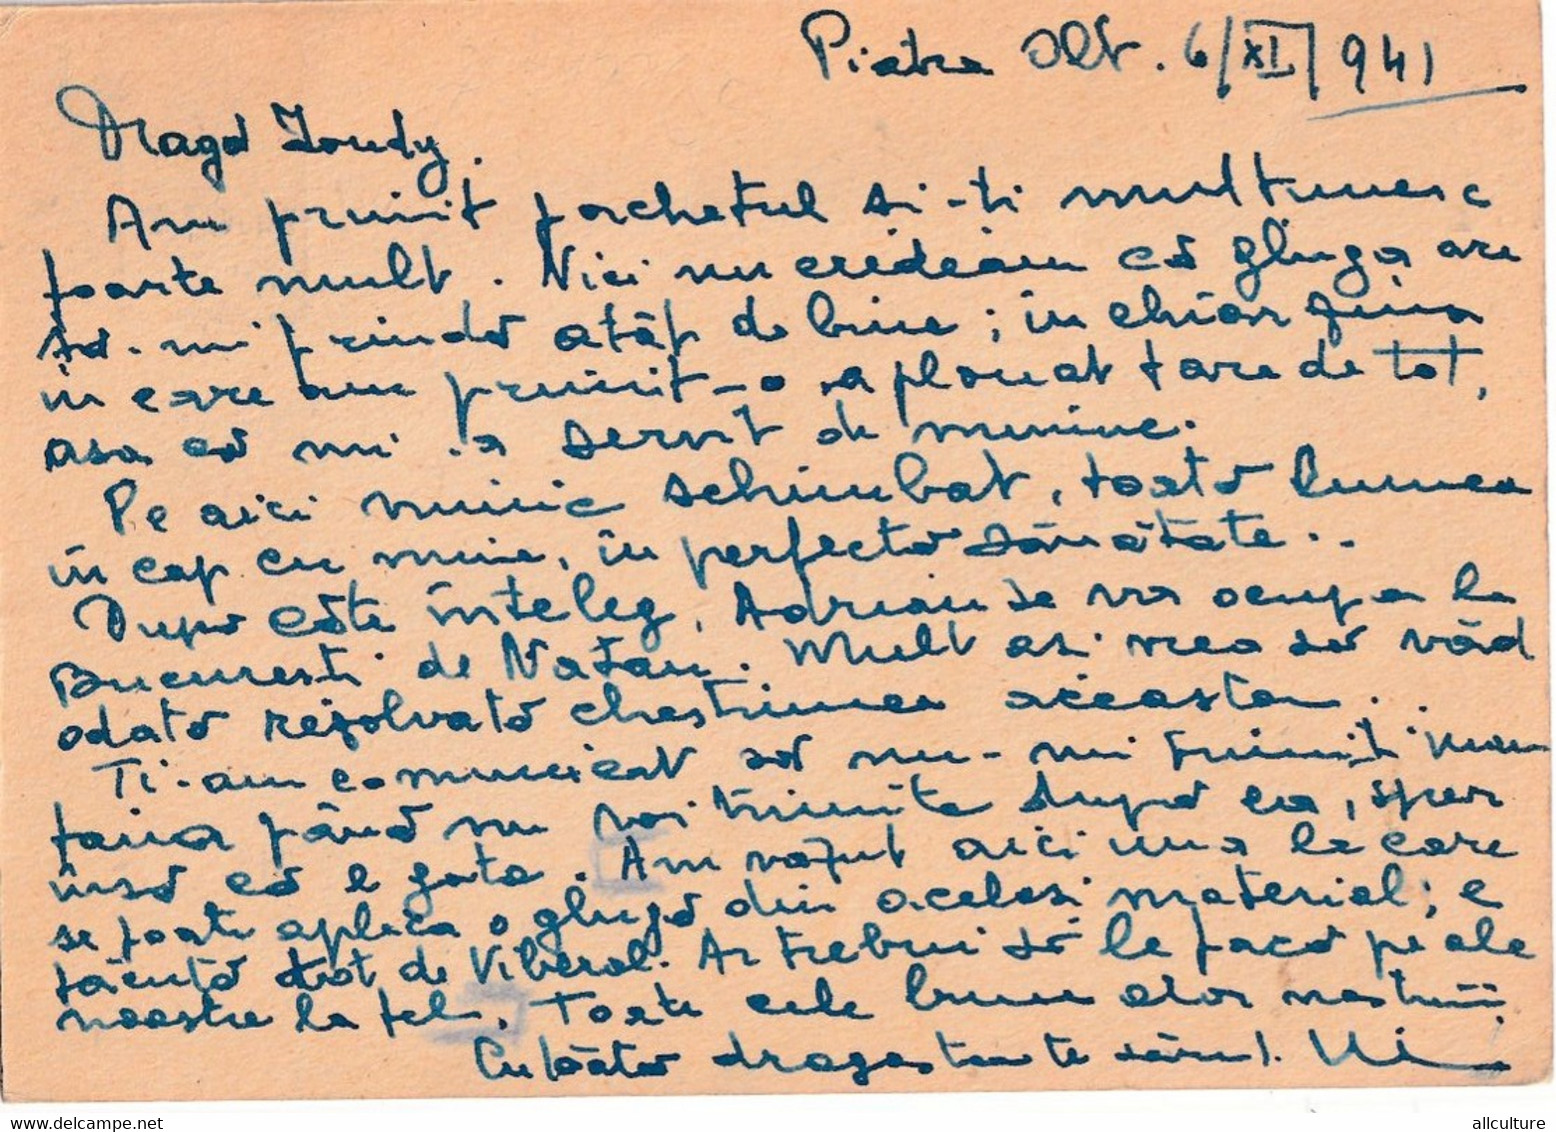 Piatra Olt. 6/XI/941
Dragă Jondy.
Am primit pachetul si-ti multumesc
foarte mult. Nici nu credeam că gluga are
să-mi prindă atât de bine; în chiar ziua
in care am primit-o a plouat tare de tot,
asa că mi-a servit de minune.
Pe aici nimic schimbat, toată lumea
în cap cu mine, în perfectă sănătate..
După câte înteleg, Adrian se va ocupa la
Bucuresti de Natan. Mult asi vrea să văd
odată rezolvată chestiunea aceasta...
Ti-am comunicat să nu-mi trimiti man
taua până nu voi trimite după ea, sper
însă că e gata. Am văzut aici una la care
se poate aplica o glugă din acelasi material; e
făcută tot de Viberal. Ar trebui să le facă pe ale
noastre la fel. Toate cele bune alor nostrii
Cu toată dragostea te sărut.
allculture